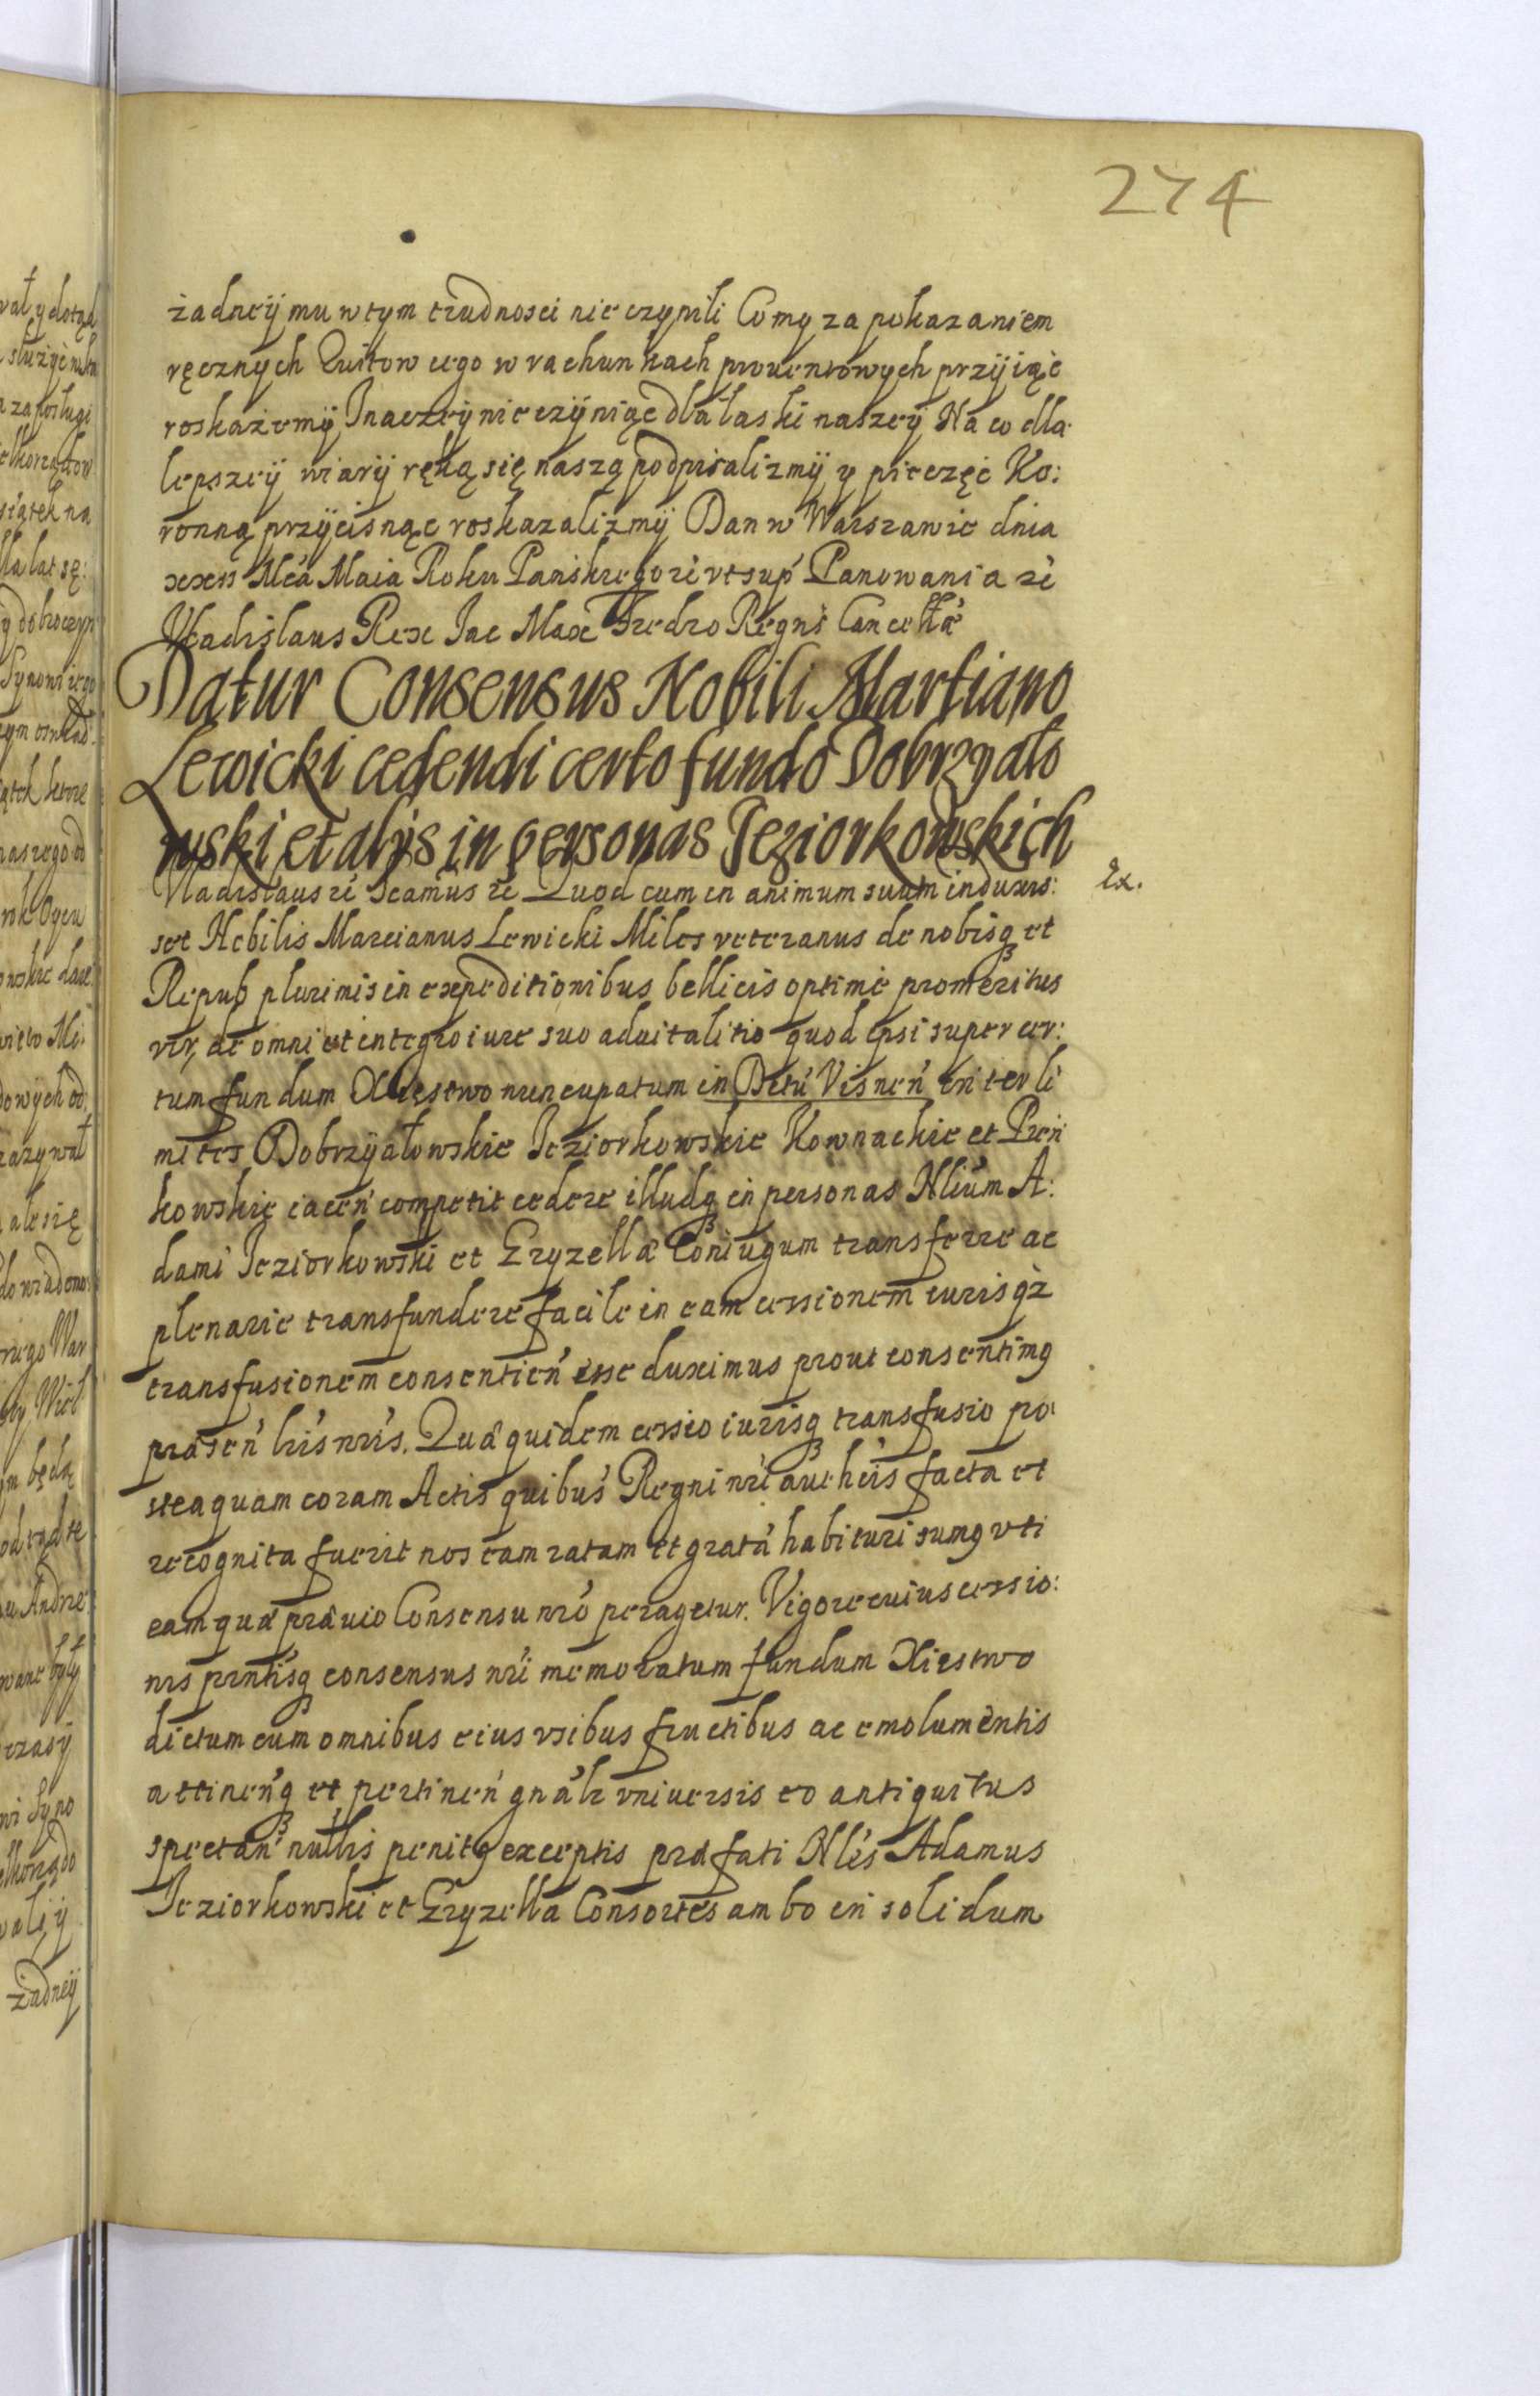 274
żadneÿ mu w tym trudnosci nie czynili Co my za pokazaniem
ręcznych Quitow iego w rachunkach prouentowych przÿiąć
roskażemÿ Inaczeÿ nie czÿniąc dla łaski naszeÿ Na co dla
lepszeÿ wiarÿ ręką się naszą podpisalizmÿ y pieczęć Ko:
ronną przÿcisnąc roskazalizmÿ Dan w Warszawie dnia
Mca Maia Roku Panskiego zc vt sup Panowania zc
Vladislaus Rex Iac Max Fredro Regni Cancellae
Datur Consensus Nobili Martiano
Lewicki cedendi certo fundo Dobrzyało
wski et alÿs in personas Jeziorkowskich
Vladislaus zc Scamus zc Quod cum in animum suum induxis:
Ex.
set Nobilis Marcianus Lewicki Miles veteranus de nobisq et
Repub plurimis in expeditionibus bellicis optime promeritus
vir, de omni et integro iure suo aduitalitio quod ipsi super cer:
tum fundum Xięstwo nuncupatum in Bctu Visnen inter li
mites Dobrzÿałowskie Jeziorkowskie Kownackie et Pień
kowskie iacen competit cedere illudq in personas Nlium A:
dami Jeziorkowski et Gryzella Coniugum transferre ac
plenarie transfundere facile in eam cessionem iurisq
transfusionem consentien esse duximus prout consentimg
præsen lris nris. Quâ quidem cessio iurisq transfusio po
steaquam coram Actis quibus Regni nri autheis facta et
recognita fuerit nos eam ratam et gratâ habituri sumg vti
eam quâ prâuio Consensu nro peragetur. Vigore cuius cessio:
nis prntisq consensus nri memoratum fundum Xiestwo
dictum cum omnibus eius vsibus fructibus ac emolumentis
attinenq et pertinen gnalr vniuersis eo antiquitus
spectan nullis penitg exceptis præfati Nles Adamus
Jeziorkowski et Gryzella Consortes ambo in solidum